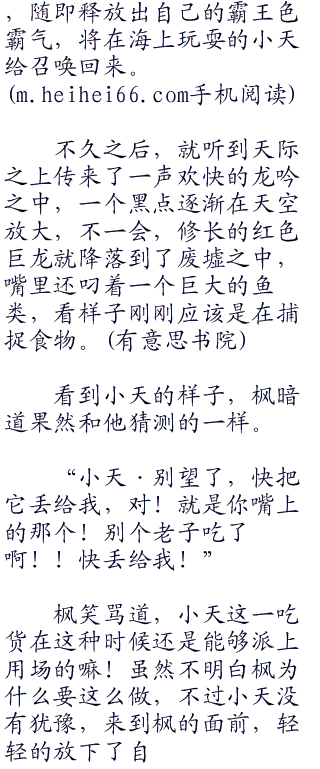 ，随即释放出自己的霸王色
霸气，将在海上玩耍的小天
给召唤回来。
(m.heihei66.com手机阅读)
不久之后，就听到天际
之上传来了一声欢快的龙吟
之中，一个黑点逐渐在天空
放大，不一会，修长的红色
巨龙就降落到了废墟之中，
嘴里还叼着一个巨大的鱼
类，看样子刚刚应该是在捕
捉食物。(有意思书院)
看到小天的样子，枫暗
道果然和他猜测的一样。
“小天·别望了，快把
它丢给我，对！就是你嘴上
的那个！别个老子吃了
啊！！快丢给我！”
枫笑骂道，小天这一吃
货在这种时候还是能够派上
用场的嘛！虽然不明白枫为
什么要这么做，不过小天没
有犹豫，来到枫的面前，轻
轻的放下了自